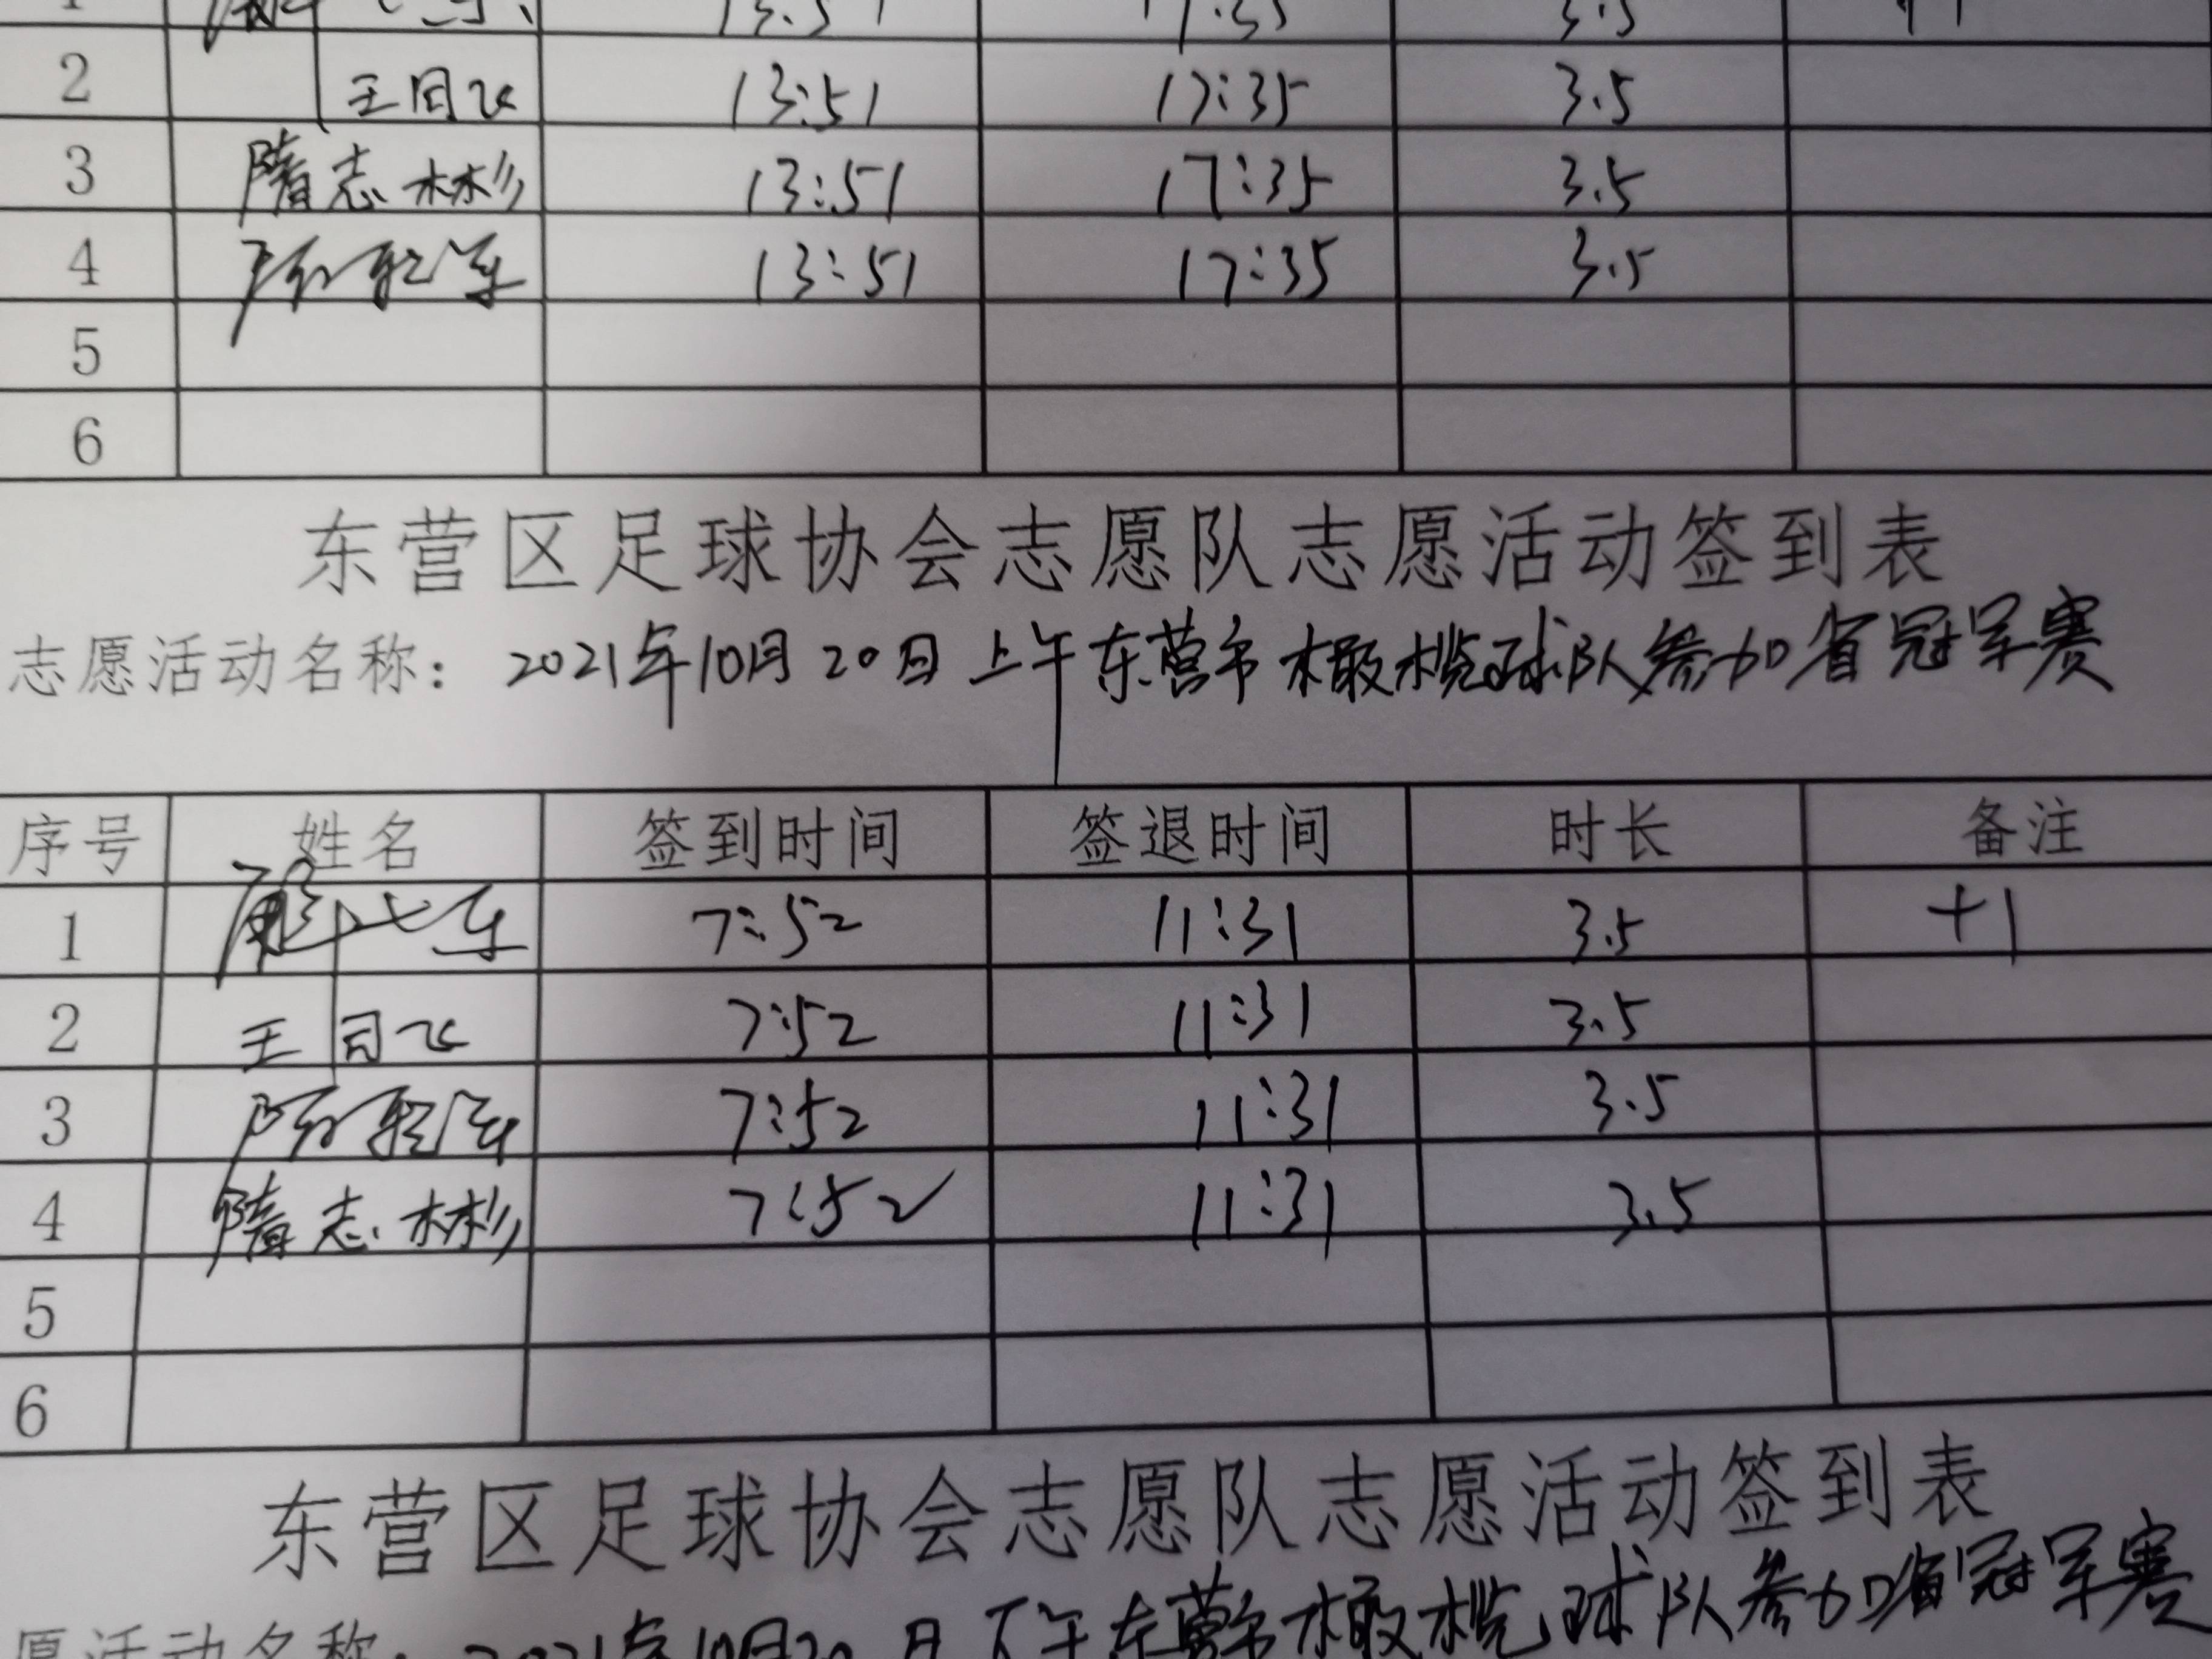 1 13:51 17:35 3.5 +1
2 王同飞 13:51 17:35 3.5
3 隋志彬 13:51 17:35 3.5
4 13:51 17:35 3.5
5
6
东营区足球协会志愿队志愿活动签到表
志愿活动名称：2021年10月20日上午东营市橄榄球队参加省冠军赛
序号 姓名 签到时间 签退时间 时长 备注
1 7:52 11:31 3.5 +1
2 王同飞 7:52 11:31 3.5
3 7:52 11:31 3.5
4 隋志彬 7:52 11:31 3.5
5
6
东营区足球协会志愿队志愿活动签到表
愿活动名称：2021年10月20日下午东营市橄榄球队参加省冠军赛